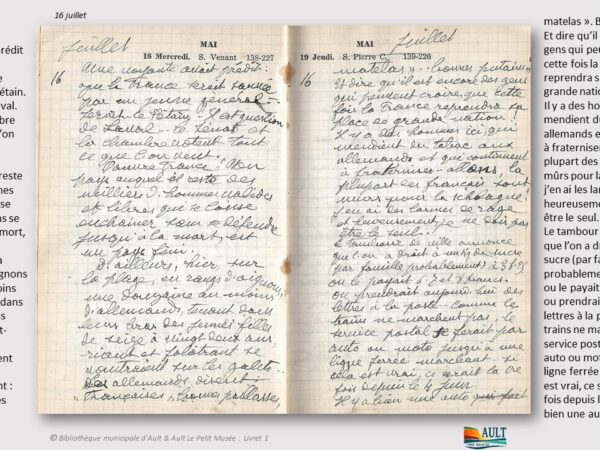 16 juillet
rédit
étain.
val.
bre
'on
reste
nes
ns se
mort,
gnons
oins
dans
es
t-
ent
t :
es
juillet
MAI
18 Mercredi. S. Venant 138-227
16
Une voyante avait prédit :
que la France serait sauvée
par un jeune général -
serait-ce Pétain - Il est question
de Laval - le Sénat et
la chambre votent tout
ce que l'on veut.
Pauvre France ! Un
pays auquel il reste des
milliers d'hommes valides
et libres qui se laisse
enchaîner sans se défendre
jusqu'à la mort, est
un pays fini.
D'ailleurs, hier, sur
la place, en rangs d'oignons,
une douzaine au moins
d'allemands, tenant dans
leurs bras des jeunes filles
de seize à vingt deux ans
riant et folâtrant se
montraient sur les galets.
Des allemands disent
"Françaises",
juillet
MAI
19 Jeudi. S. Pierre C. 139-226
matelas" - hommes
Et dire qu'il est encore des gens
qui peuvent croire que cette
fois la France reprendra sa
place de grande nation !
Il y a des hommes ici, qui
mendient du tabac aux
allemands et qui continuent
à fraterniser - allons, la
plupart des français sont
mûrs pour la
J'en ai les larmes de rage
et heureusement je ne dois pas
être le seul.
Le tambour de ville annonce
que l'on a droit à
sucre
par famille probablement) à
on le payait
on prendrait aujourd'hui des
lettres à la poste - comme les
trains ne marchent pas, le
service postal se ferait par
auto ou moto jusqu'à une
ligne ferrée marchant. si
cela est vrai, ce serait la 1re
fois depuis le 4 juin.
Il y a bien une auto qui fait
matelas ». B
Et dire qu'il
gens qui peu
cette fois la
reprendra s
grande natio
Il y a des ho
mendient du
allemands e
à fraternise
plupart des
mûrs pour la
j'en ai les lar
heureuseme
être le seul.
Le tambour
que l'on a dr
sucre (par fa
probableme
ou le payait
ou prendrai
lettres à la p
trains ne ma
service post
auto ou mot
ligne ferrée
est vrai, ce s
fois depuis l
bien une au
© Bibliothèque municipale d'Ault & Ault Le Petit Musée : Livret 1
AULT